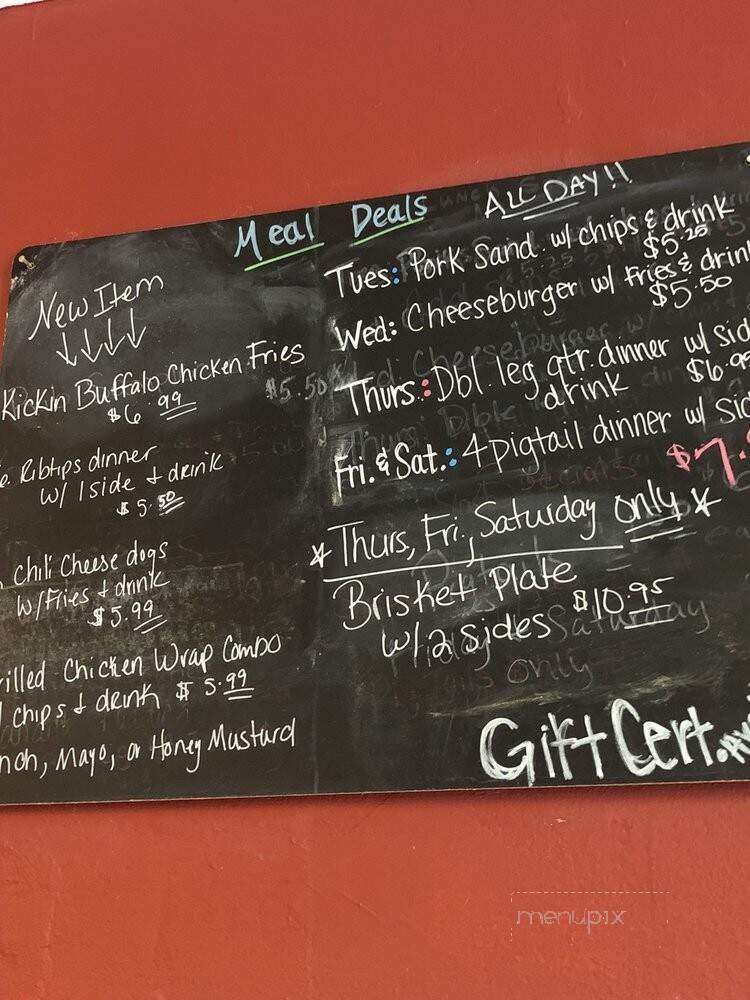 Meal Deals ALL DAY!!
New Item
Kickin Buffalo Chicken Fries
$6.99
Ribtips dinner
w/ 1 side + drink
$5.50
Chili Cheese dogs
w/ Fries + drink
$5.99
rilled Chicken Wrap Combo
chips + drink $5.99
nch, Mayo, or Honey Mustard
Tues: Pork Sand. w/ chips & drink
$5.25
Wed: Cheeseburger w/ Fries & drin
$5.50
Thurs: Dbl. leg qtr. dinner w/ sid
drink $6.9
Fri. & Sat.: 4 pigtail dinner w/ sid
$7.
*Thurs, Fri, Saturday only*
Brisket Plate
w/ 2 sides $10.95
Gift Cert.
menupix